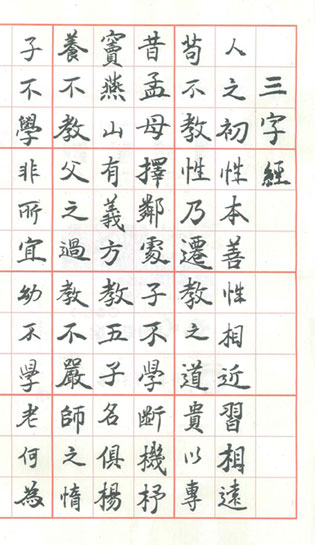 三字經
人之初性本善性相近習相遠
苟不教性乃遷教之道貴以專
昔孟母擇鄰處子不學斷機杼
竇燕山有義方教五子名俱楊
養不教父之過教不嚴師之惰
子不學非所宜幼不學老何為